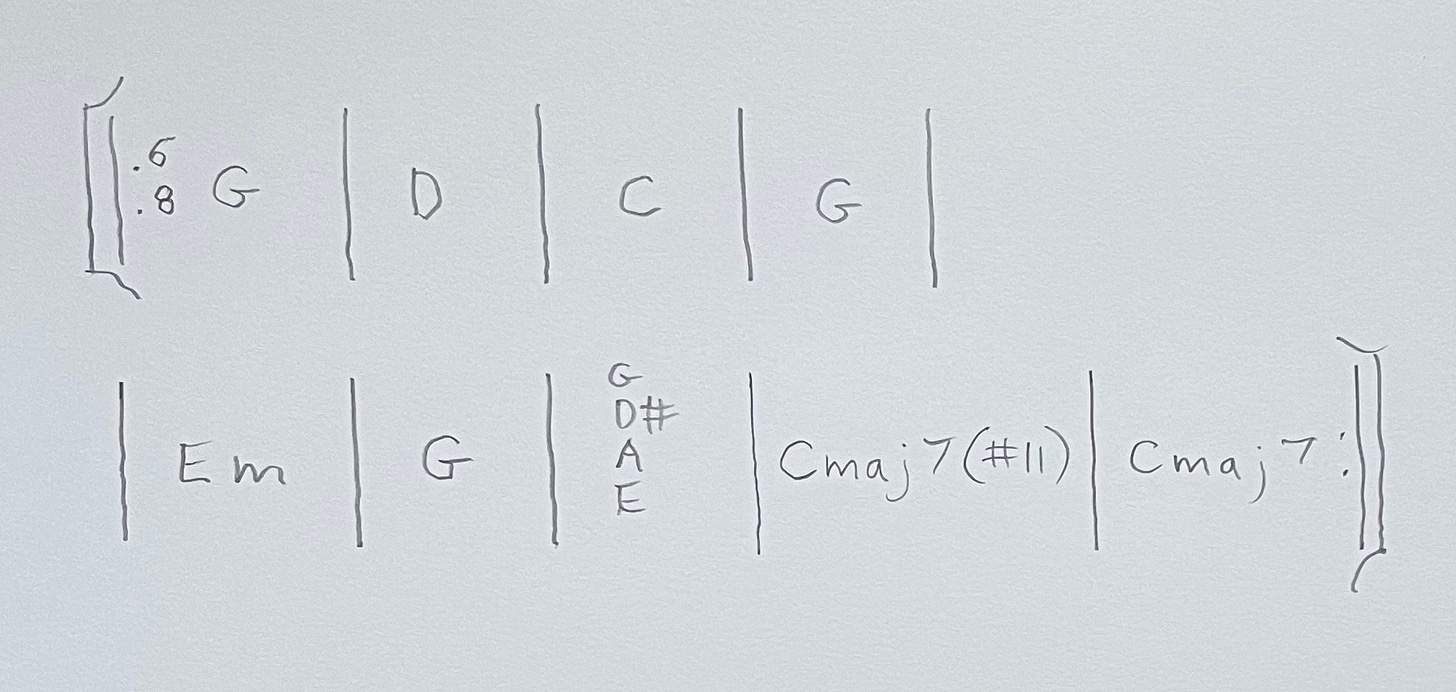 6 8 G D C G
Em G G D# A E Cmaj7(#11) Cmaj7